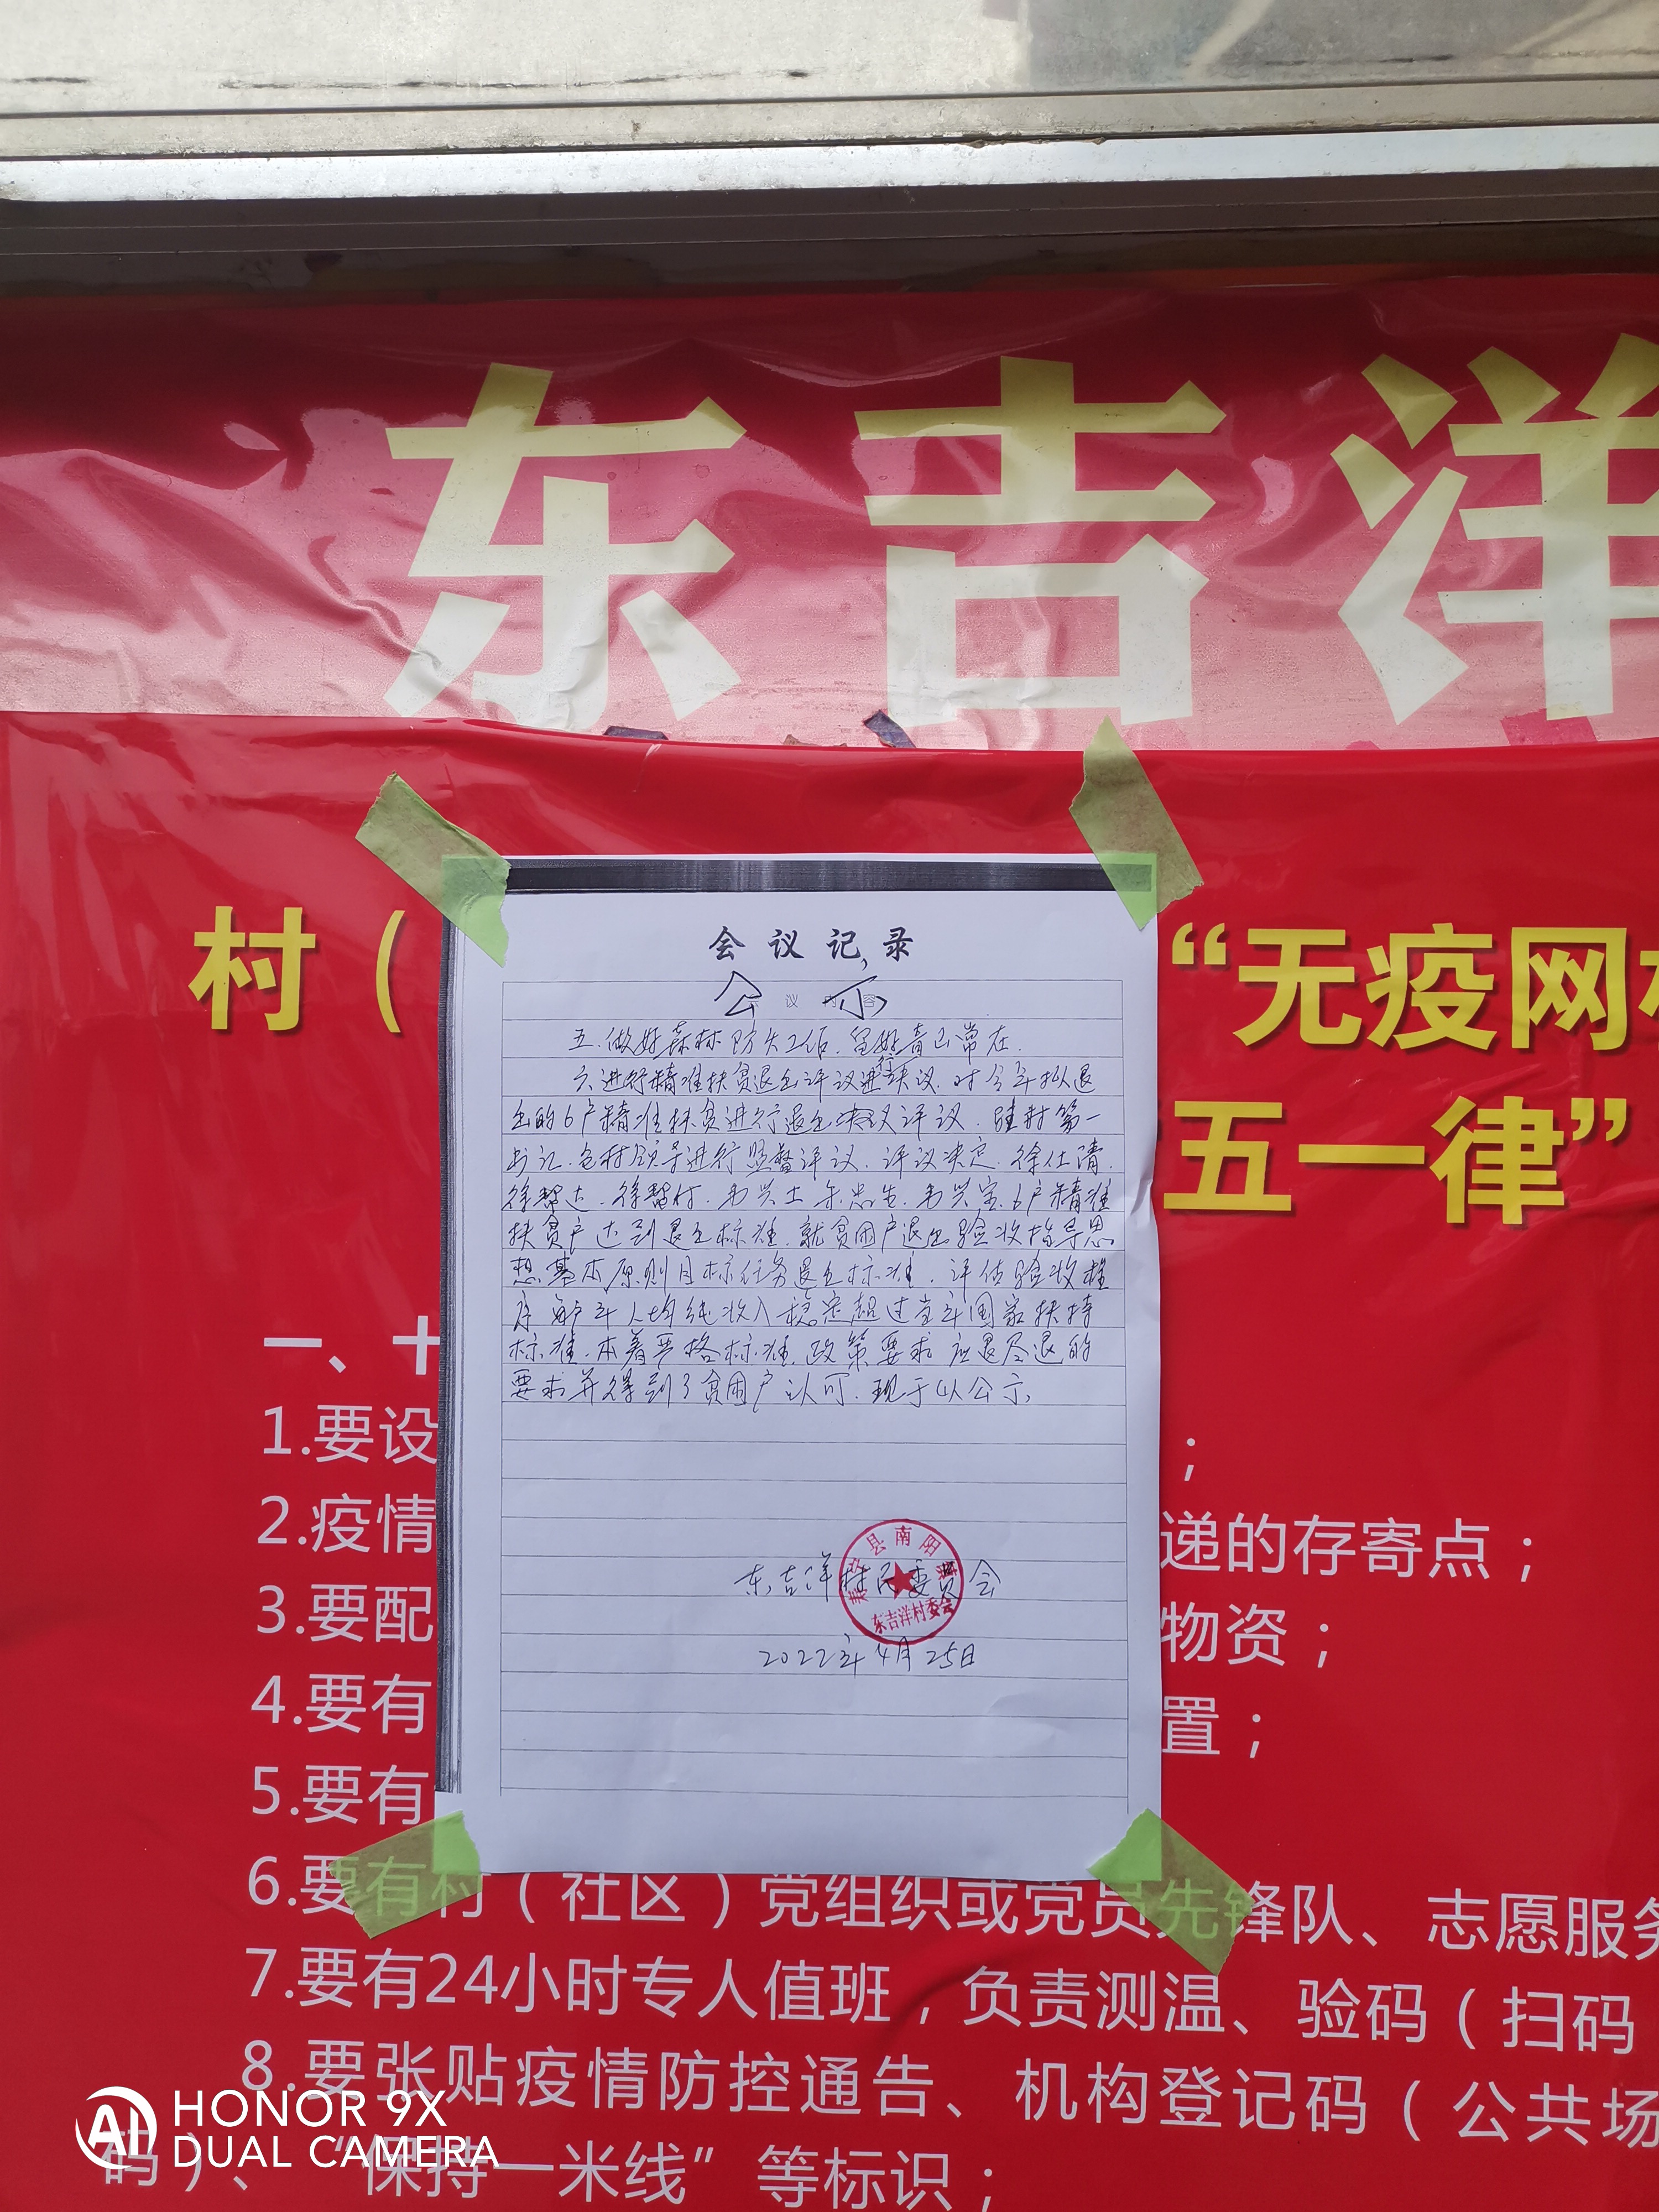 东吉洋
村（
“无疫网
五一律”
会议记录
公示
五.做好森林防火工作.留好青山常在.
六.进行精准扶贫退出评议进行决议.对今年拟退
出的6户精准扶贫进行退出决议评议.驻村第一
书记.包村领导进行监督评议.评议决定.徐仕清.
扶贫户达到退出标准.就贫困户退出验收指导思
想基本原则目标任务退出标准.评估验收程
序 年人均纯收入稳定超过当年国家扶持
标准.本着严格标准.政策要求应退尽退的
要求并得到了贫困户认可.现予以公示,
东吉洋村民委员会
寿宁县南阳镇
东吉洋村委会
2022年4月25日
一、十
1.要设
；
2.疫情
递的存寄点；
3.要配
物资；
4.要有
置；
5.要有
6.要有村（社区）党组织或党员先锋队、志愿服务
7.要有24小时专人值班，负责测温、验码（扫码
8.要张贴疫情防控通告、机构登记码（公共场
码）、“保持一米线”等标识；
HONOR 9X
DUAL CAMERA